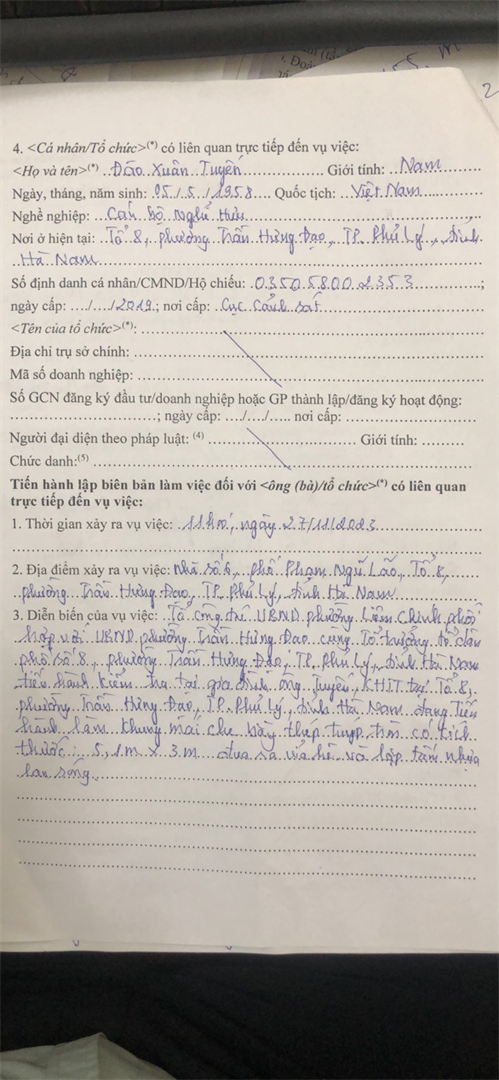 2
4. <Cá nhân/Tổ chức>(*) có liên quan trực tiếp đến vụ việc:
<Họ và tên>(*) Đào Xuân Tuyến Giới tính: Nam
Ngày, tháng, năm sinh: 05/5/1958 Quốc tịch: Việt Nam
Nghề nghiệp: Cán bộ Nghỉ Hưu
Nơi ở hiện tại: Tổ 8, phường Trần Hưng Đạo, TP. Phủ Lý, tỉnh
Hà Nam
Số định danh cá nhân/CMND/Hộ chiếu: 035058002353;
ngày cấp: .../.../2019.; nơi cấp: Cục Cảnh sát
<Tên của tổ chức>(*):
Địa chỉ trụ sở chính:
Mã số doanh nghiệp:
Số GCN đăng ký đầu tư/doanh nghiệp hoặc GP thành lập/đăng ký hoạt động:
; ngày cấp: .../.../..... nơi cấp:
Người đại diện theo pháp luật: (4) Giới tính:
Chức danh:(5)
Tiến hành lập biên bản làm việc đối với <ông (bà)/tổ chức>(*) có liên quan
trực tiếp đến vụ việc:
1. Thời gian xảy ra vụ việc: 11h00, ngày 27/11/2023
2. Địa điểm xảy ra vụ việc: Nhà số 6, phố Phạm Ngũ Lão, Tổ 8,
phường Trần Hưng Đạo, TP. Phủ Lý, tỉnh Hà Nam
3. Diễn biến của vụ việc: Tổ công UBND phường Liêm Chính phối
hợp với UBND phường Trần Hưng Đạo cùng Tổ trưởng tổ dân
phố số 8, phường Trần Hưng Đạo, TP. Phủ Lý, tỉnh Hà Nam
tiến hành kiểm tra tại gia đình ông Tuyến, KHTT tại Tổ 8,
phường Trần Hưng Đạo, TP. Phủ Lý, tỉnh Hà Nam đang tiến
hành làm khung mái che bằng thép tuýp, tôn có kích
thước: 5,1m x 3m đua ra vỉa hè và lắp tấm nhựa
lan sóng.